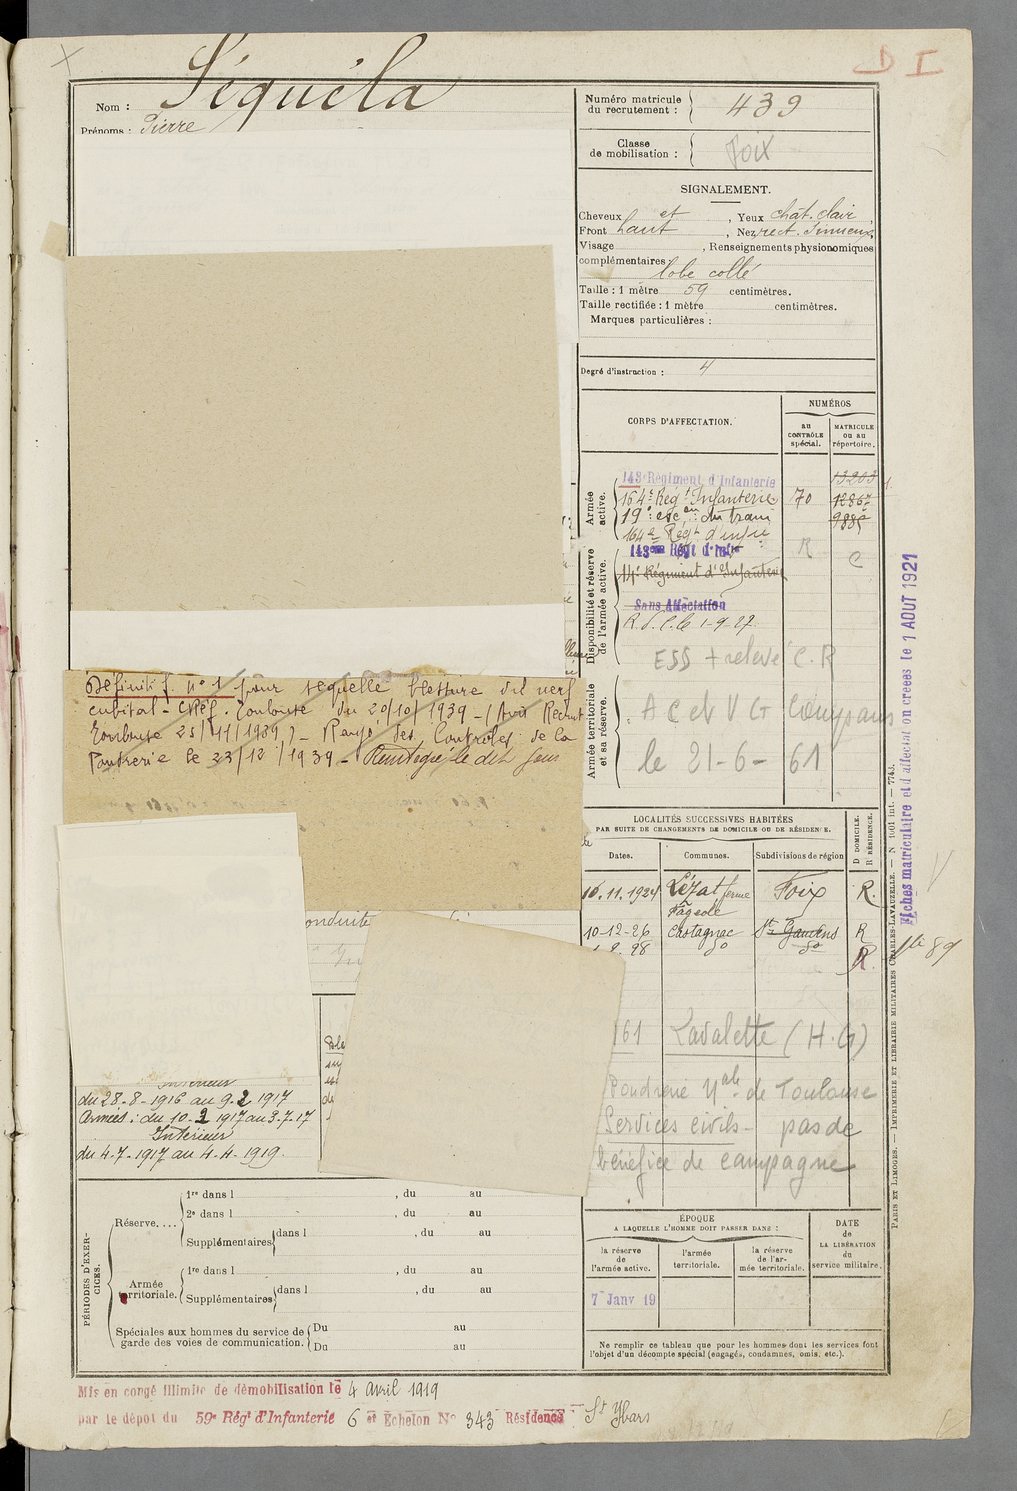 D I
Nom : Séquéla
Prénoms : Pierre
Numéro matricule
du recrutement : 439
Classe
de mobilisation : Foix
SIGNALEMENT.
Cheveux et , Yeux chât. clair ,
Front haut , Nez rect. sinueux,
Visage , Renseignements physionomiques
complémentaires
lobe collé
Taille : 1 mètre 59 centimètres.
Taille rectifiée : 1 mètre centimètres.
Marques particulières :
Degré d'instruction : 4
CORPS D'AFFECTATION.
NUMÉROS
au
CONTRÔLE
spécial.
MATRICULE
ou au
répertoire.
Armée
active.
143e Régiment d'Infanterie
164e Régt Infanterie 70
19e esc.on du train
164e Régt d'infie
13203
12867
Disponibilité et réserve
de l'armée active.
143ème Régt d'Infie
14e Régiment d'Infanterie
R C
Sans Affectation
R.d.C.le 1-9-27
ESS + relevé C.R
Armée territoriale
et sa réserve.
A C et V G Compans
le 21-6-61
Définitif. n° 1 pour séquelle blessure du nerf
cubital - CRéf. Toulouse du 20/10/1939 - (Avis Recrut
Toulouse 25/11/1939) - Rayé des Contrôles de la
Poudrerie le 23/12/1939 - Réintégré le dit jour
LOCALITÉS SUCCESSIVES HABITÉES
PAR SUITE DE CHANGEMENTS DE DOMICILE OU DE RÉSIDENCE.
Dates. Communes. Subdivisions de région
D DOMICILE.
R RÉSIDENCE.
16.11.1924 Lézat ferme Foix R.
Fagede
10-12-26 Castagnac St Gaudens R
do do R.
61 Lavalette (H.G)
Poudrerie Nale de Toulouse
Services civils - pas de
bénéfice de campagne
onduite
Intérieur
du 28-8-1916 au 9-2 1917
Armées : du 10-2 1917 au 3-7-17
Intérieur
du 4-7-1917 au 4-4-1919.
PÉRIODES D'EXER-
CICES.
Réserve....
1re dans l , du au
2e dans l , du au
Supplémentaires dans l , du au
Armée
territoriale.
1re dans l , du au
Supplémentaires dans l , du au
Spéciales aux hommes du service de
garde des voies de communication.
Du au
Du au
ÉPOQUE
A LAQUELLE L'HOMME DOIT PASSER DANS :
la réserve
de
l'armée active.
l'armée
territoriale.
la réserve
de l'ar-
mée territoriale.
DATE
de
LA LIBÉRATION
du
service militaire.
7 Janv 19
Ne remplir ce tableau que pour les hommes dont les services font
l'objet d'un décompte spécial (engagés, condamnés, omis, etc.).
Mis en congé illimité de démobilisation le 4 avril 1919
par le dépôt du 59e Régt d'Infanterie 6 et Echelon N° 343 Résidence St Ybars
Fiches matriculaire et d'affectation créées le 1 AOUT 1921
PARIS ET LIMOGES. — IMPRIMERIE ET LIBRAIRIE MILITAIRES CHARLES-LAVAUZELLE. — N° 1001 int. — 7743.